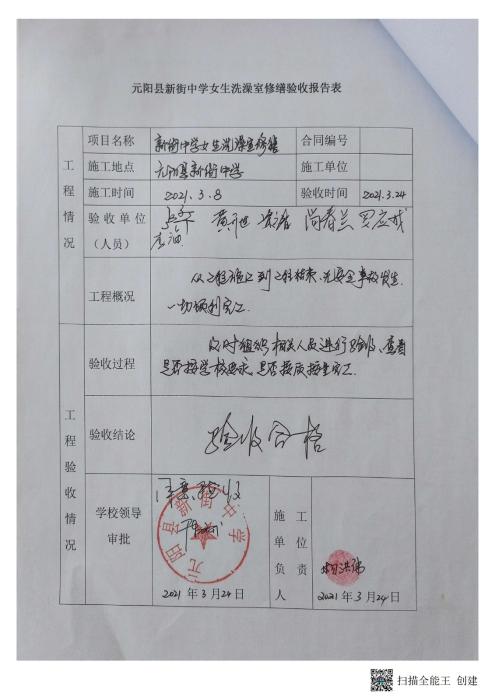 元阳县新街中学女生洗澡室修缮验收报告表
工程情况
项目名称 新街中学女生洗澡室修缮 合同编号
施工地点 元阳县新街中学 施工单位
施工时间 2021.3.8 验收时间 2021.3.24
验收单位（人员） 尚春兰 罗应成
工程概况
从工程施工到工程结束、无安全事故发生.
一切顺利完工.
工程验收情况
验收过程
及时组织相关人员进行验收、查看
是否按学校要求、是否按质按量完工.
验收结论 验收合格
学校领导审批
同意验收
元阳县新街中学
2021年3月24日
施工单位负责人
2021年3月24日
扫描全能王 创建